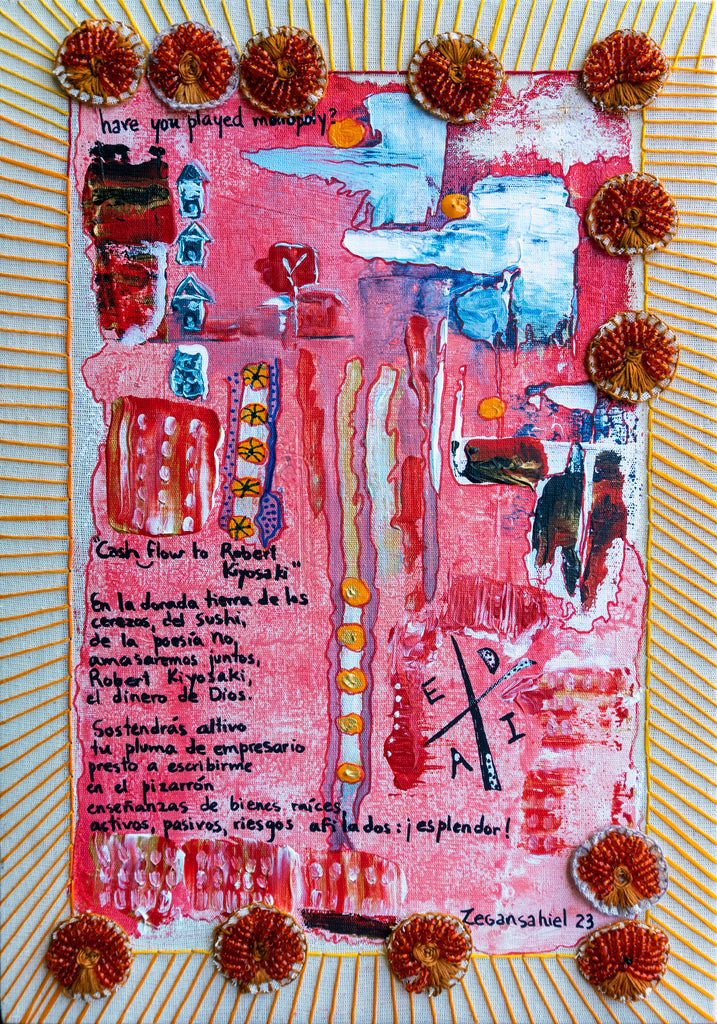 have you played monopoly?
"Cash flow to Robert
Kiyosaki"
En la dorada tierra de los
cerezos, del sushi,
de la poesía No,
amasaremos juntos,
Robert Kiyosaki,
el dinero de Dios.
Sostendrás altivo
tu pluma de empresario
presto a escribirme
en el pizarrón
enseñanzas de bienes raíces,
activos, pasivos, riesgos afilados: ¡esplendor!
E D
A I
Zegansahiel 23